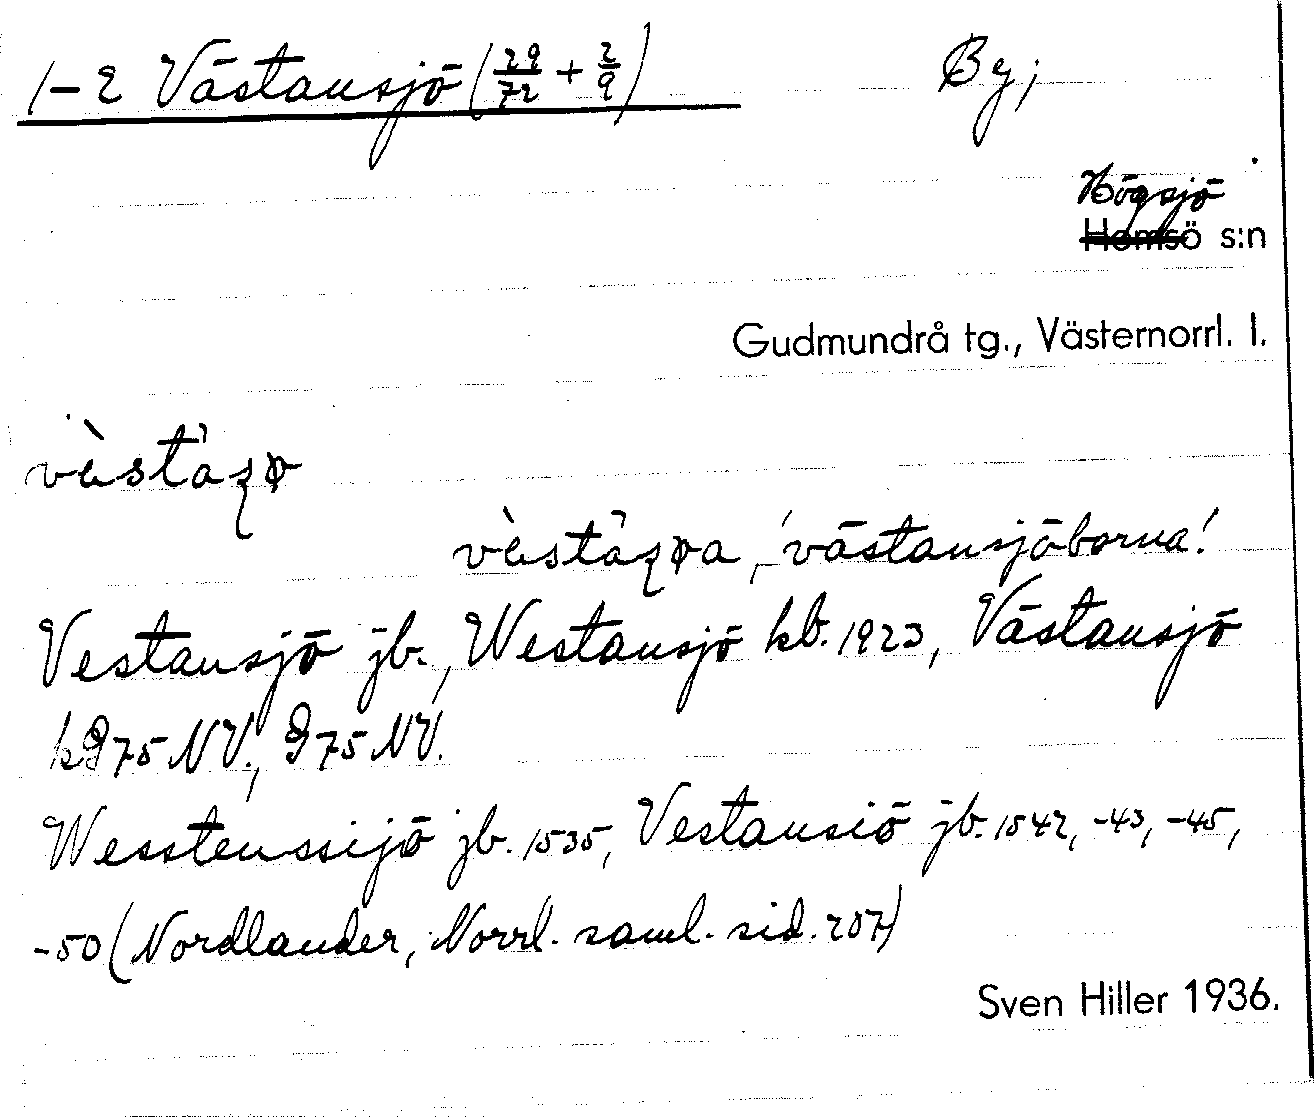 1-2 Västansjö (29/72 + 2/9) By;
Högsjö
Hemsö s:n
Gudmundrå tg., Västernorrl. l.
'västansjöborna'
Vestansjö jb., Westansjö kb. 1923, Västansjö
kG 75 NV., G 75 NV.
Wesstenssijö jb. 1535, Vestansiö jb. 1542, -43, -45,
-50 (Nordlander, Norrl. saml. sid. 257)
Sven Hiller 1936.